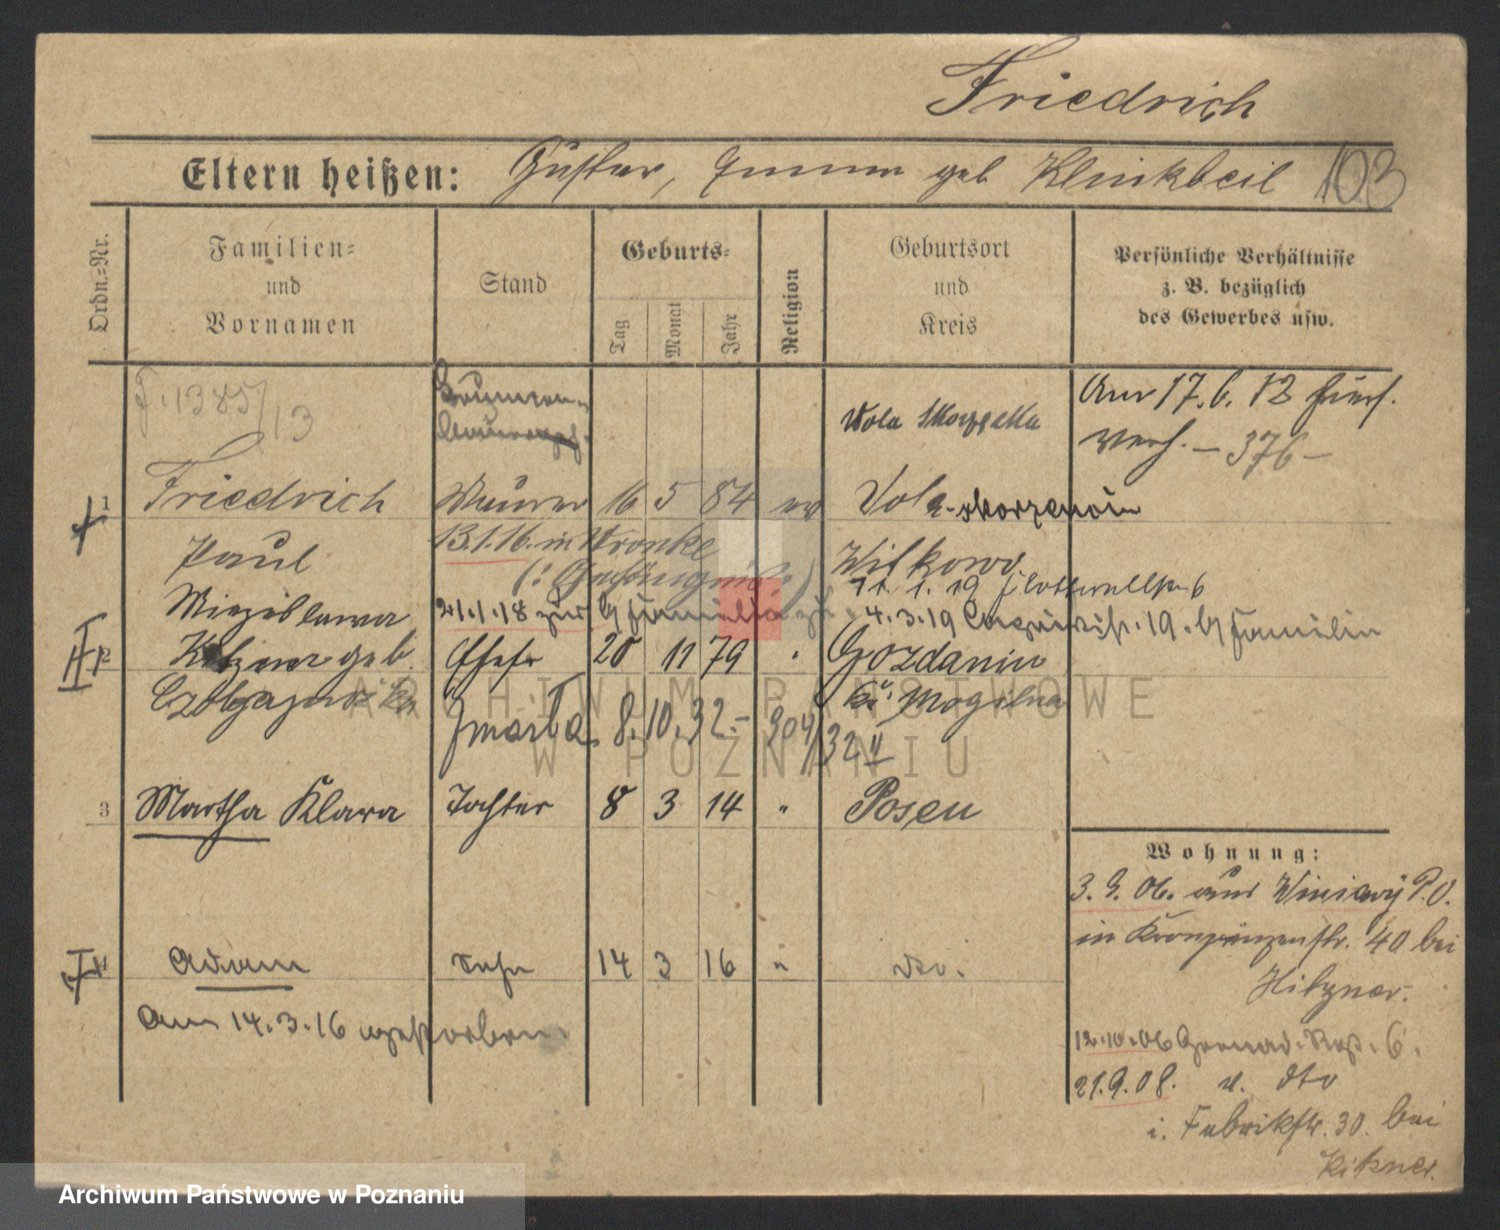 Friedrich
Eltern heißen: Gustav, geb Klinkbeil 103
Ordn.-Nr.
Familien- und Vornamen
Stand
Geburts-
Tag
Monat
Jahr
Religion
Geburtsort und Kreis
Persönliche Verhältnisse
z. B. bezüglich
des Gewerbes usw.
F. 1385/13
Wola
Am 17. 6. 12
verh. – 376 –
1 Friedrich Maurer 16 5 84 ev Wola
Paul 13.1.16. in Wronke Witkowo
(: Gefängnis :) 11. 1. 19 Flottwellstr 6
21.1.18 zur Familie 4.3.19 19. Familie
2 geb. Ehefr 20 11 79 " Gozdanin
Kr. Mogilno
zmarła 8.10.32.- 904/32 II
3 Martha Klara Tochter 8 3 14 " Posen
Wohnung:
3. 9. 06. aus Winiary P.O.
in Kronprinzenstr. 40 bei
Hitzner.
4 Adam Sohn 14 3 16 " dto.
Am 14.3.16 gestorben
12.10.06 6.
21.9.08. v. dto
i. Fabrikstr. 30. bei
Kitzner.
ARCHIWUM PAŃSTWOWE
W POZNANIU
Archiwum Państwowe w Poznaniu